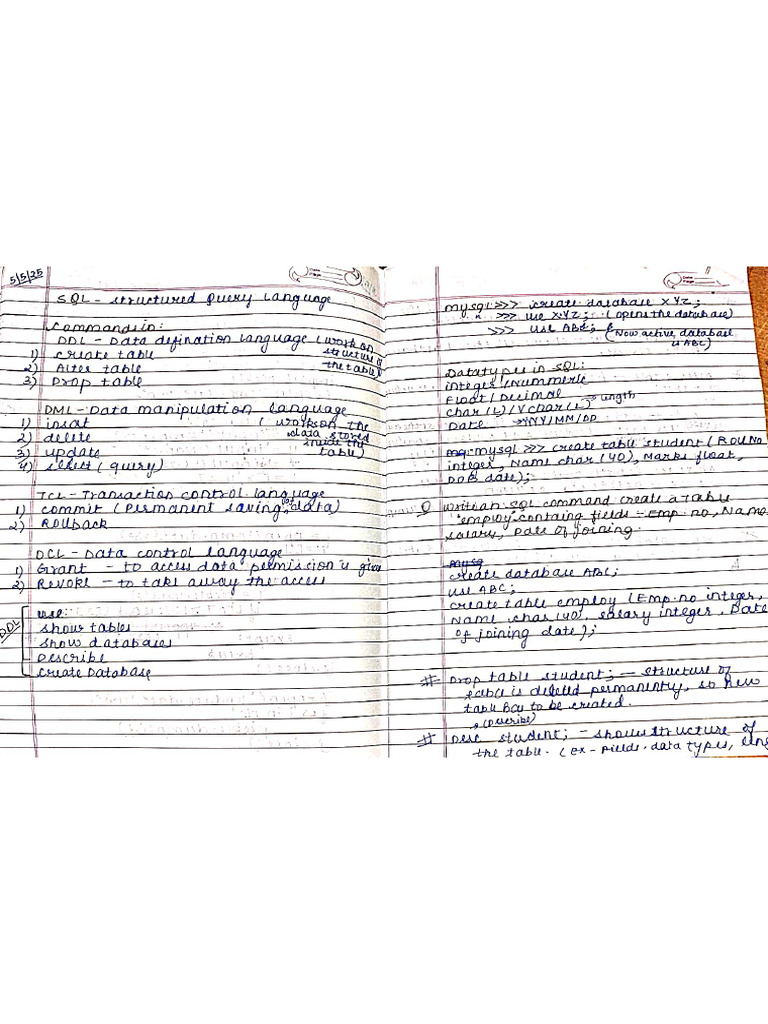 5/5/25
SQL - Structured Query Language
Commands in:
DDL - Data defination language (work on structure of the table)
1) Create table
2) Alter table
3) Drop table
DML - Data manipulation language
(works on the data stored inside the table)
1) insert
2) delete
3) update
4) select (query)
TCL - Transaction control language
1) commit (Permanent saving of data)
2) Rollback
DCL - Data control language
1) Grant - to access data permission is given
2) Revoke - to take away the access
DDL
use:
show tables
show databases
Describe
Create Database
mysql >>> create database XYZ;
>>> use XYZ; (opens the database)
>>> use ABC;
(Now active database is ABC)
Datatypes in SQL:
integer/Nummeric
Float/Decimal
char(L)/Vchar(L) → length
Date → YYYY/MM/DD
mysql >>> create table student (RollNo
integer, Name char (40), Marks float,
DOB date);
Q writ an SQL command create a table
"employ" containg fields - Emp. no, Name
salary, Date of joining.
mysq
create database ABC;
use ABC;
create table employ (Emp.no integer,
Name char (40), salary integer, Date
of joining date);
# Drop table student; - structure of
table is deleted permanenty, so new
table to be created.
(Describe)
# Desc student; - shows structure of
the table. (ex - fields, data types,